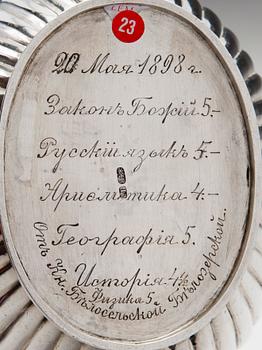 23
20 Мая 1898 г.
Законъ Божій 5.-
Русскій языкъ 5.-
Ариѳметика 4.-
Географія 5.
Исторія 4½
Физика 5.
Отъ Кн. Бѣлосельской Бѣлозерской.